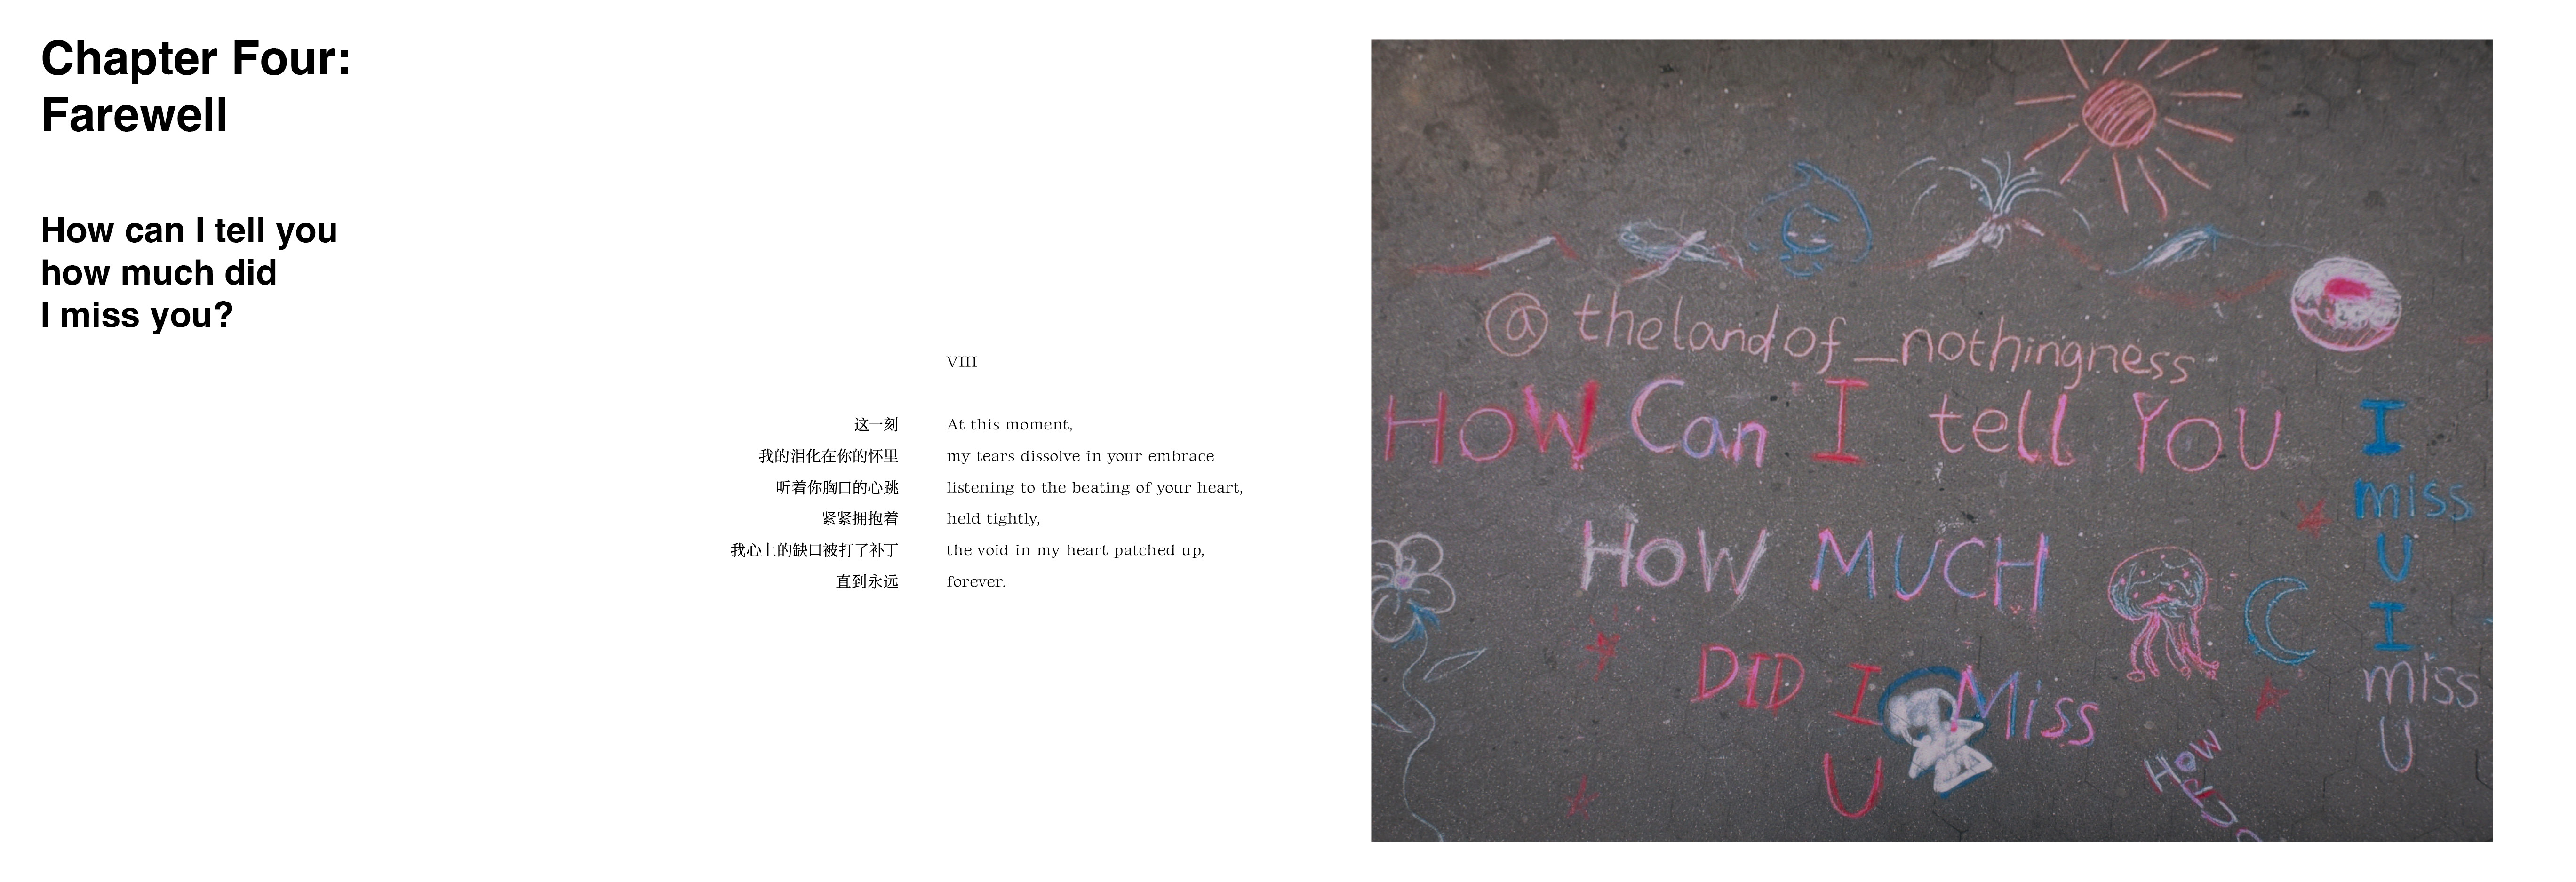 Chapter Four:
Farewell
How can I tell you
how much did
I miss you?
VIII
这一刻
我的泪化在你的怀里
听着你胸口的心跳
紧紧拥抱着
我心上的缺口被打了补丁
直到永远
At this moment,
my tears dissolve in your embrace
listening to the beating of your heart,
held tightly,
the void in my heart patched up,
forever.
@thelandof_nothingness
HOW Can I tell YOU
HOW MUCH
DID I Miss
U
I
miss
U
I
miss
U
HOW